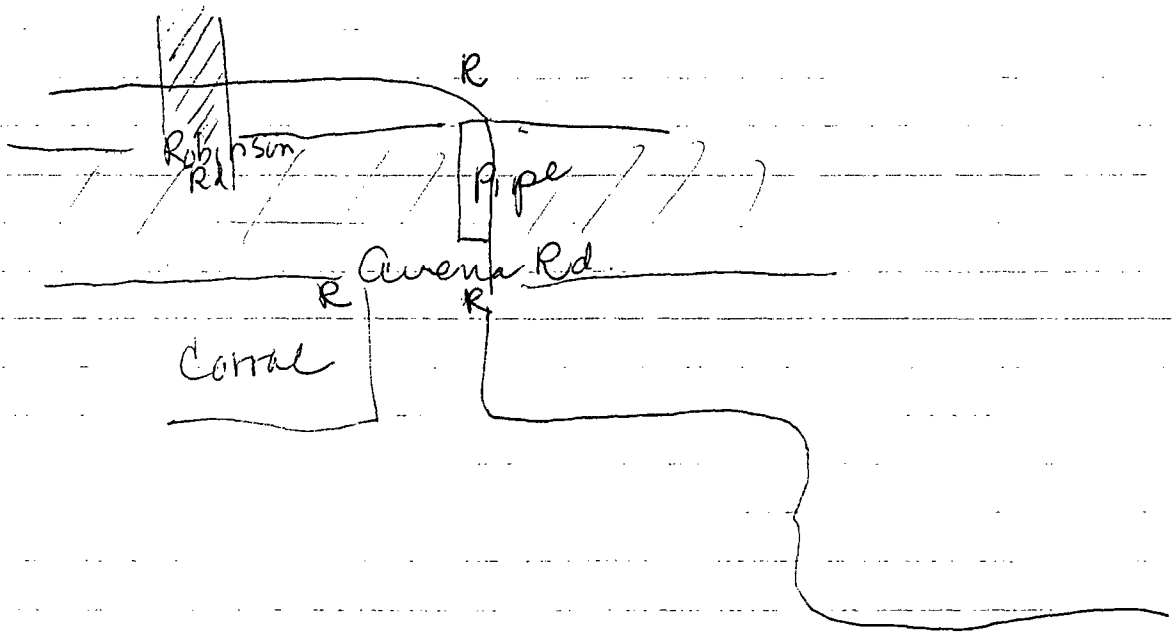 R
Robinson
Rd
Pipe
Avena Rd.
R
R
Corral